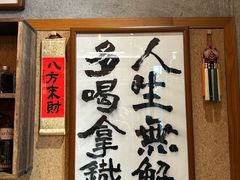 人生無解
多喝拿鐵
八方來財